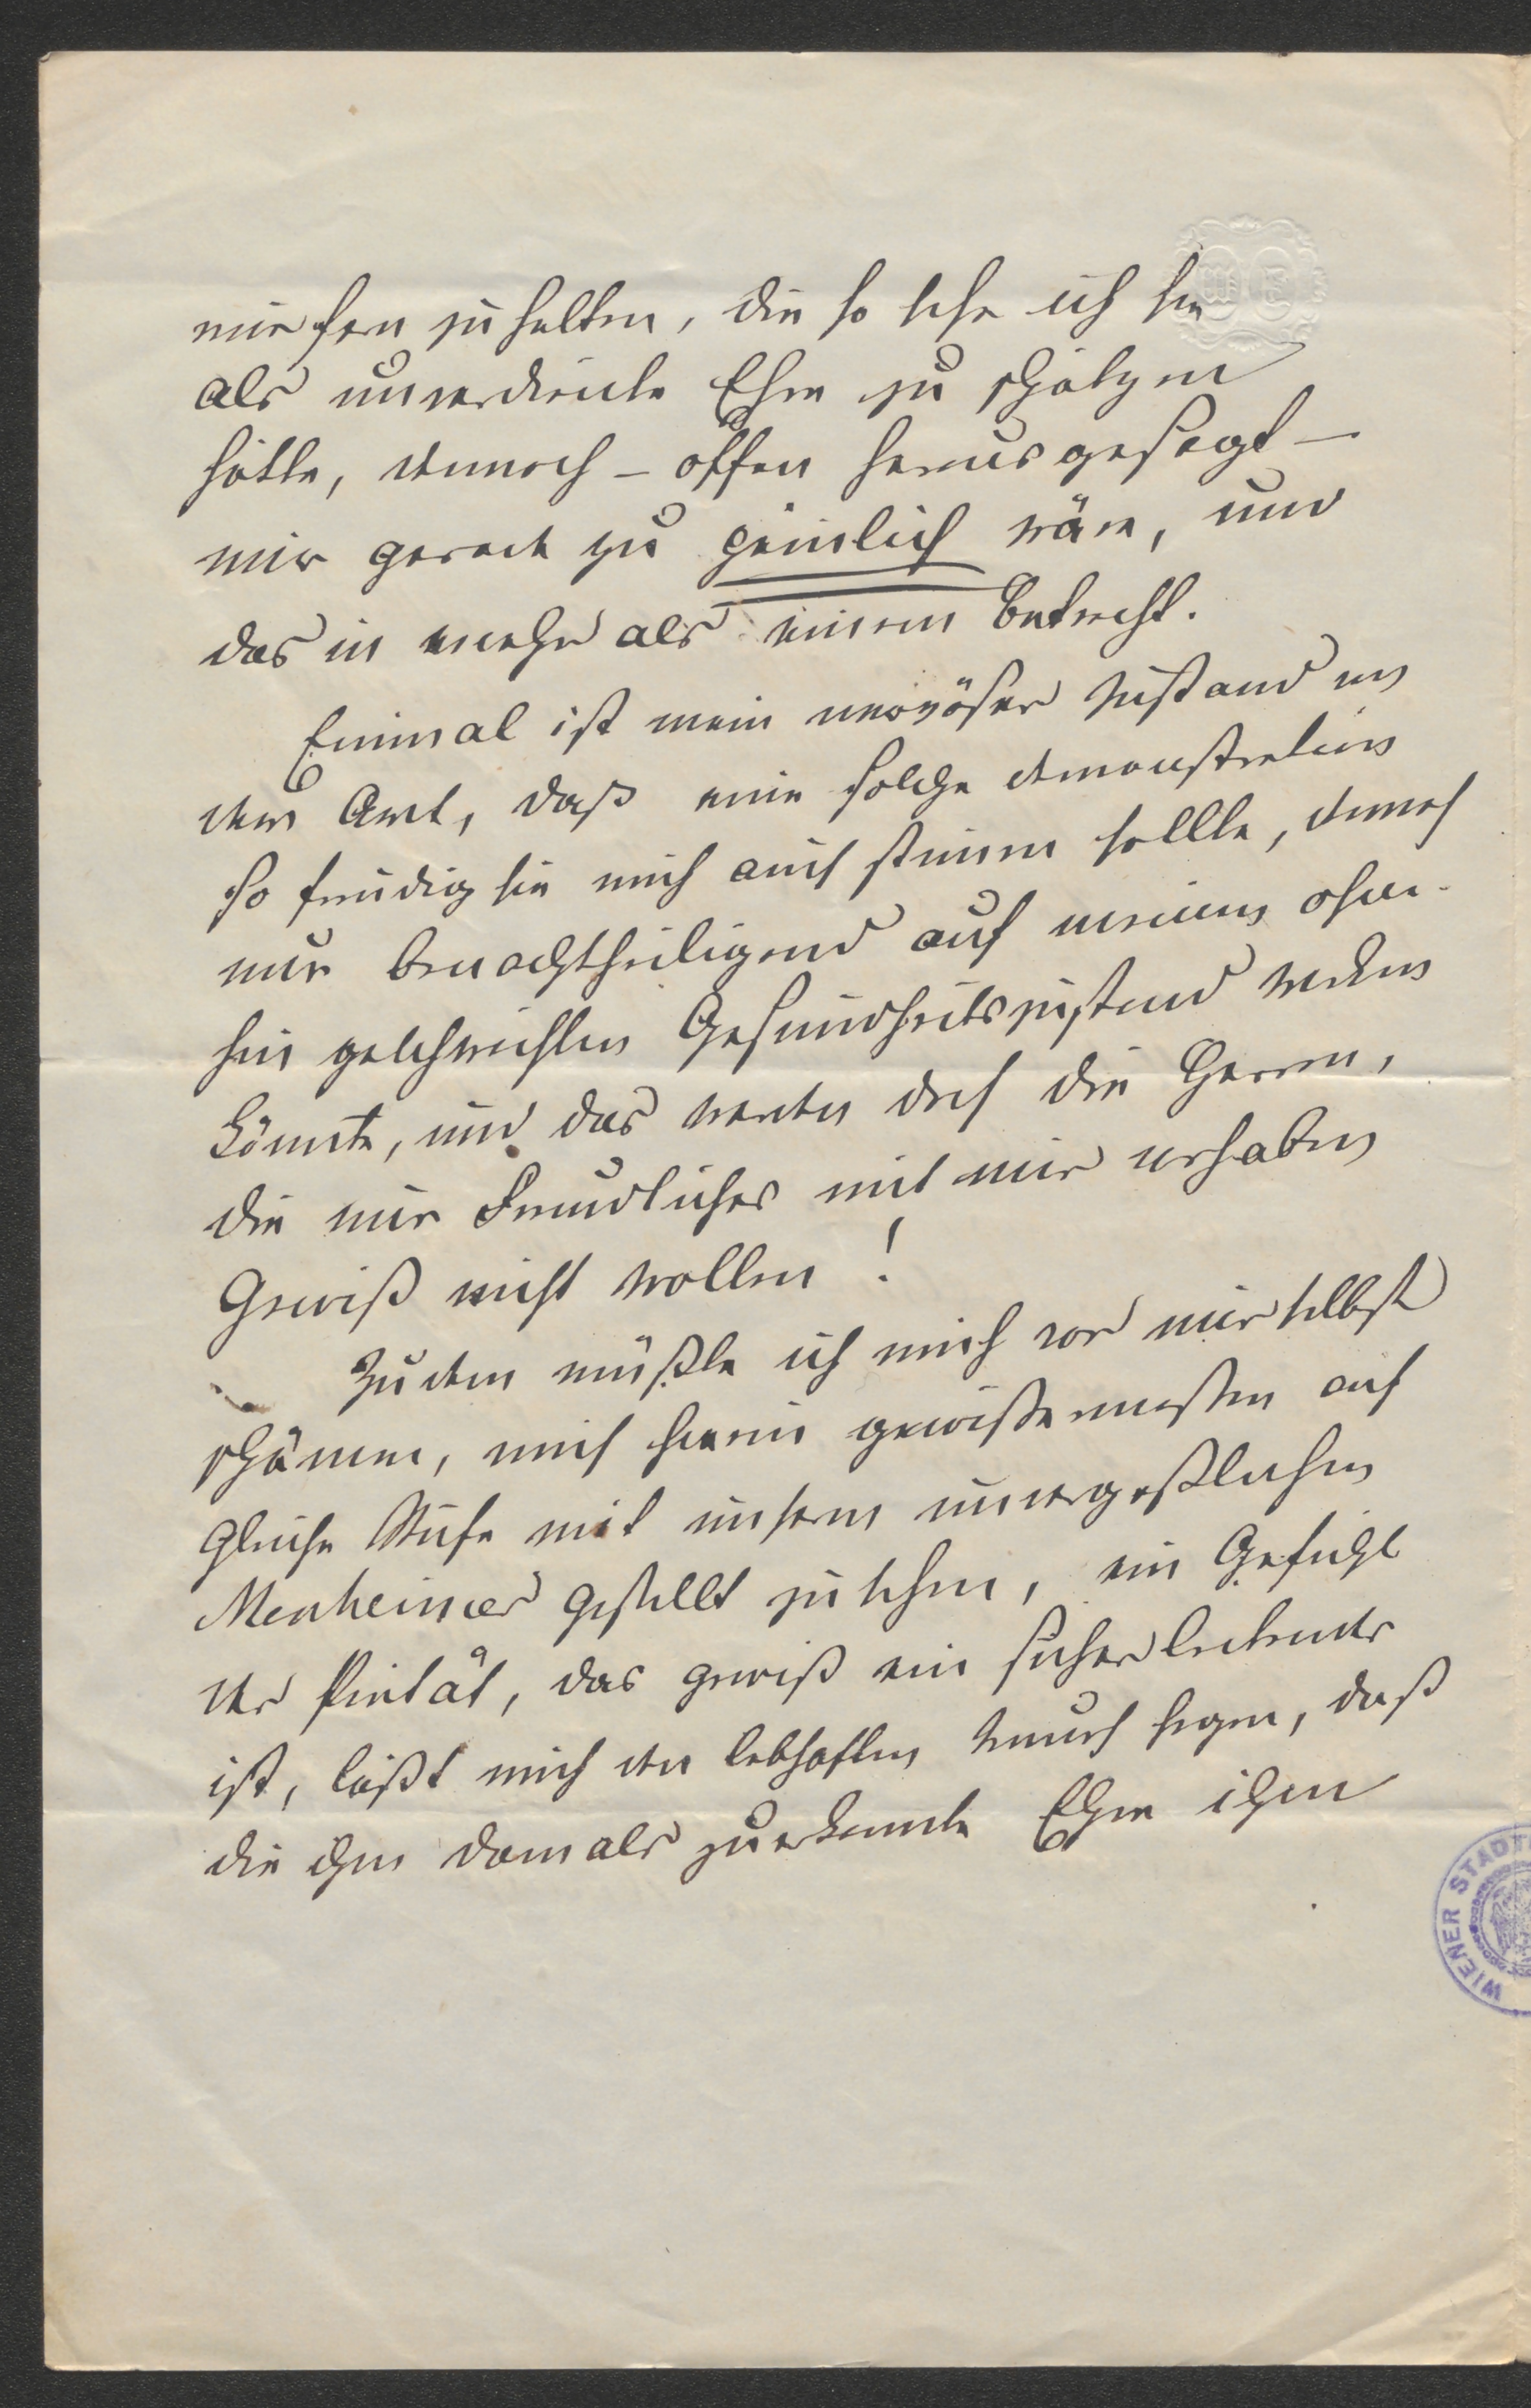 mir fern zu halten, die so sehr ich sie
als unverdiente Ehre zu schätzen
hätte, dennoch – offen herausgesagt –
mir gerade zu peinlich wäre, und
das in mehr als einem Betracht.
Einmal ist mein nervöser Zustand von
der Art, daß eine solche demonstration
so freudig sie mich auch stimmen sollte, dennoch
nur benachtheiligend auf meinen ohne-
hin geschwächten Gesundheitszustand wirken
könnte, und das werden doch die Herren,
die nur Freundliches mit mir vorhaben
Gewiß nicht wollen!
Zudem müßte ich mich vor mir selbst
schämen, mich hierin gewissermaßen auf
gleiche Stufe mit unserm unvergeßlichen
Manheimer gestellt zu sehen, ein Gefühl
der Pietät, das gewiß ein sicher leitendes
ist, läßt mich den lebhaften Wunsch hegen, daß
die ihm damals zuerkannte Ehre ihm
WIENER STADT